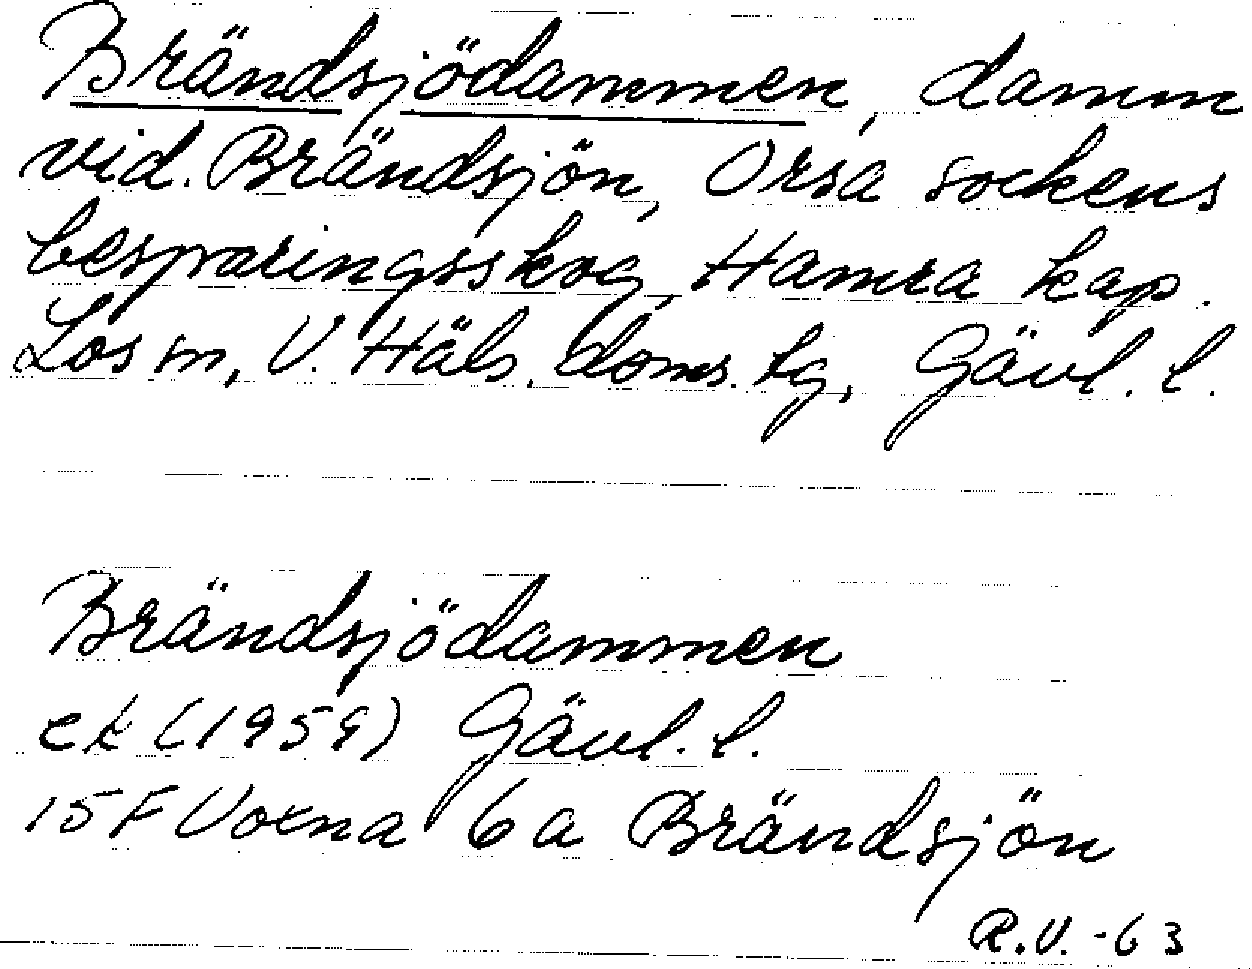 Brändsjödammen, damm
vid Brändsjön, Orsa sockens
besparingsskog, Hamra kap.
Los sn, V. Häls. doms. tg, Gävl. l.
Brändsjödammen
ek (1959) Gävl. l.
15F Voxna 6a Brändsjön
R.V. -63